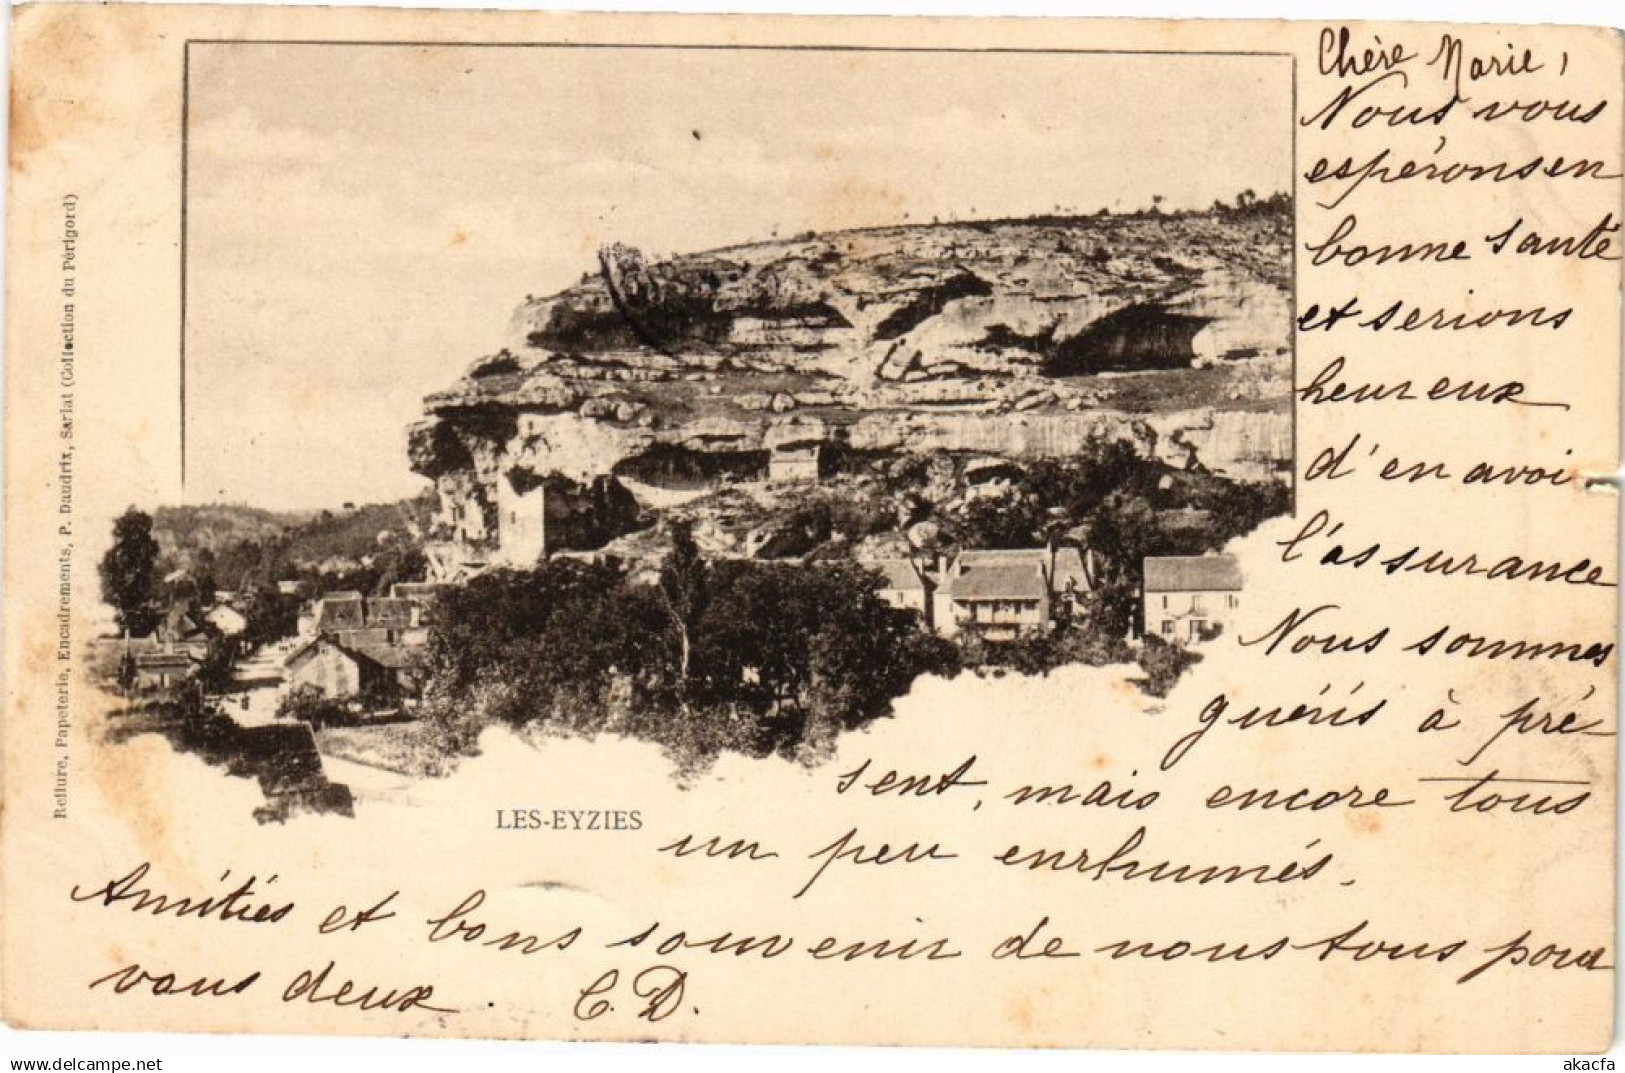 Chère Marie,
Nous vous
espérons en
bonne santé
et serions
heureux
d'en avoir
l'assurance
Nous sommes
guéris à pré-
sent, mais encore tous
un peu enrhumés.
Amitiés et bons souvenir de nous tous pour
vous deux. C. D.
LES-EYZIES
Reliure, Papeterie, Encadrements, P. Daudrix, Sarlat (Collection du Périgord)
My collection on delcampe.net
akacfa